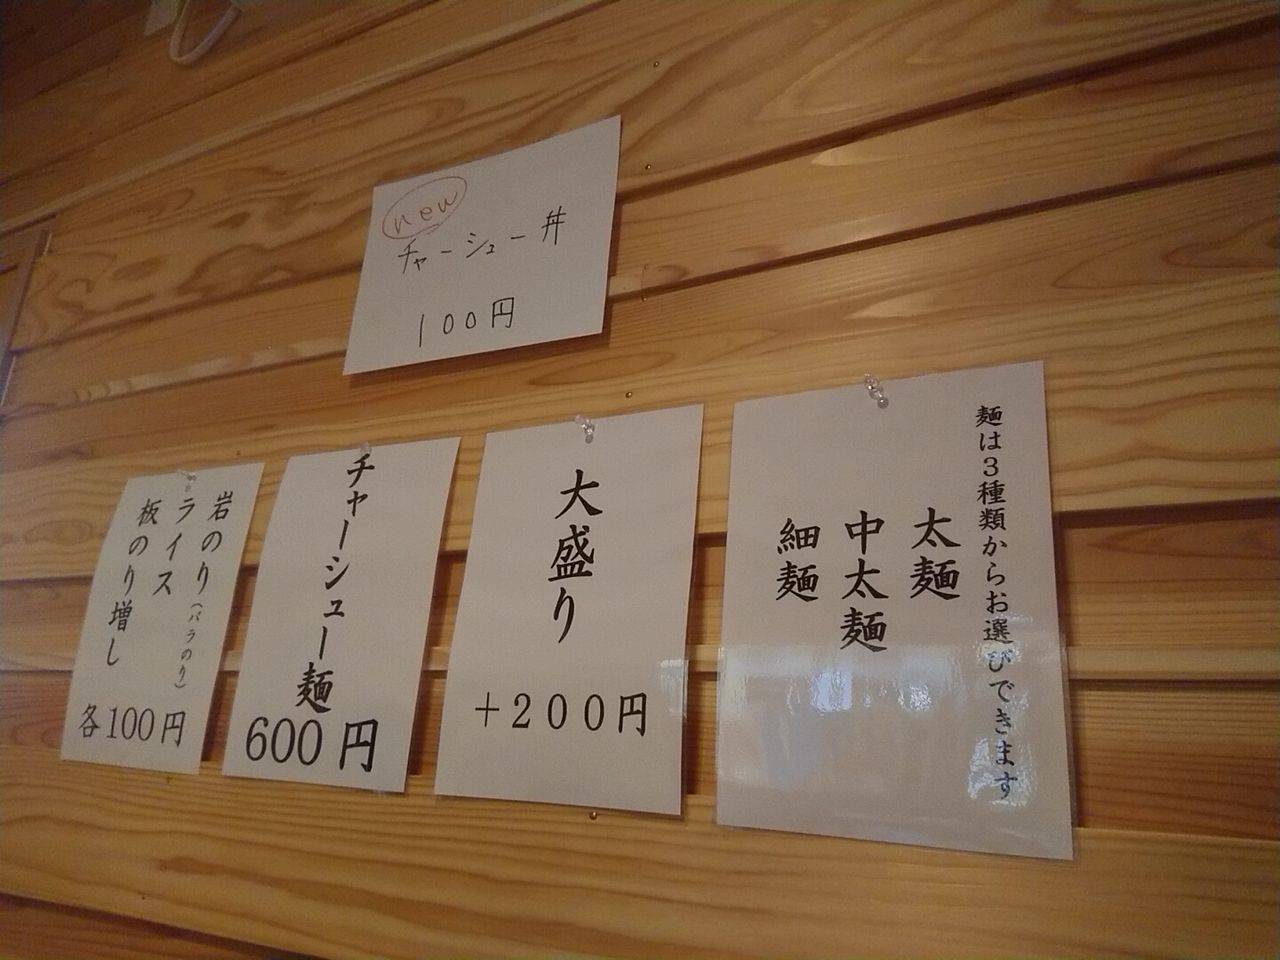 new
チャーシュー丼
100円
麺は3種類からお選びできます
太麺
中太麺
細麺
大盛り
+200円
チャーシュー麺
600円
岩のり(バラのり)
ライス
板のり増し
各100円